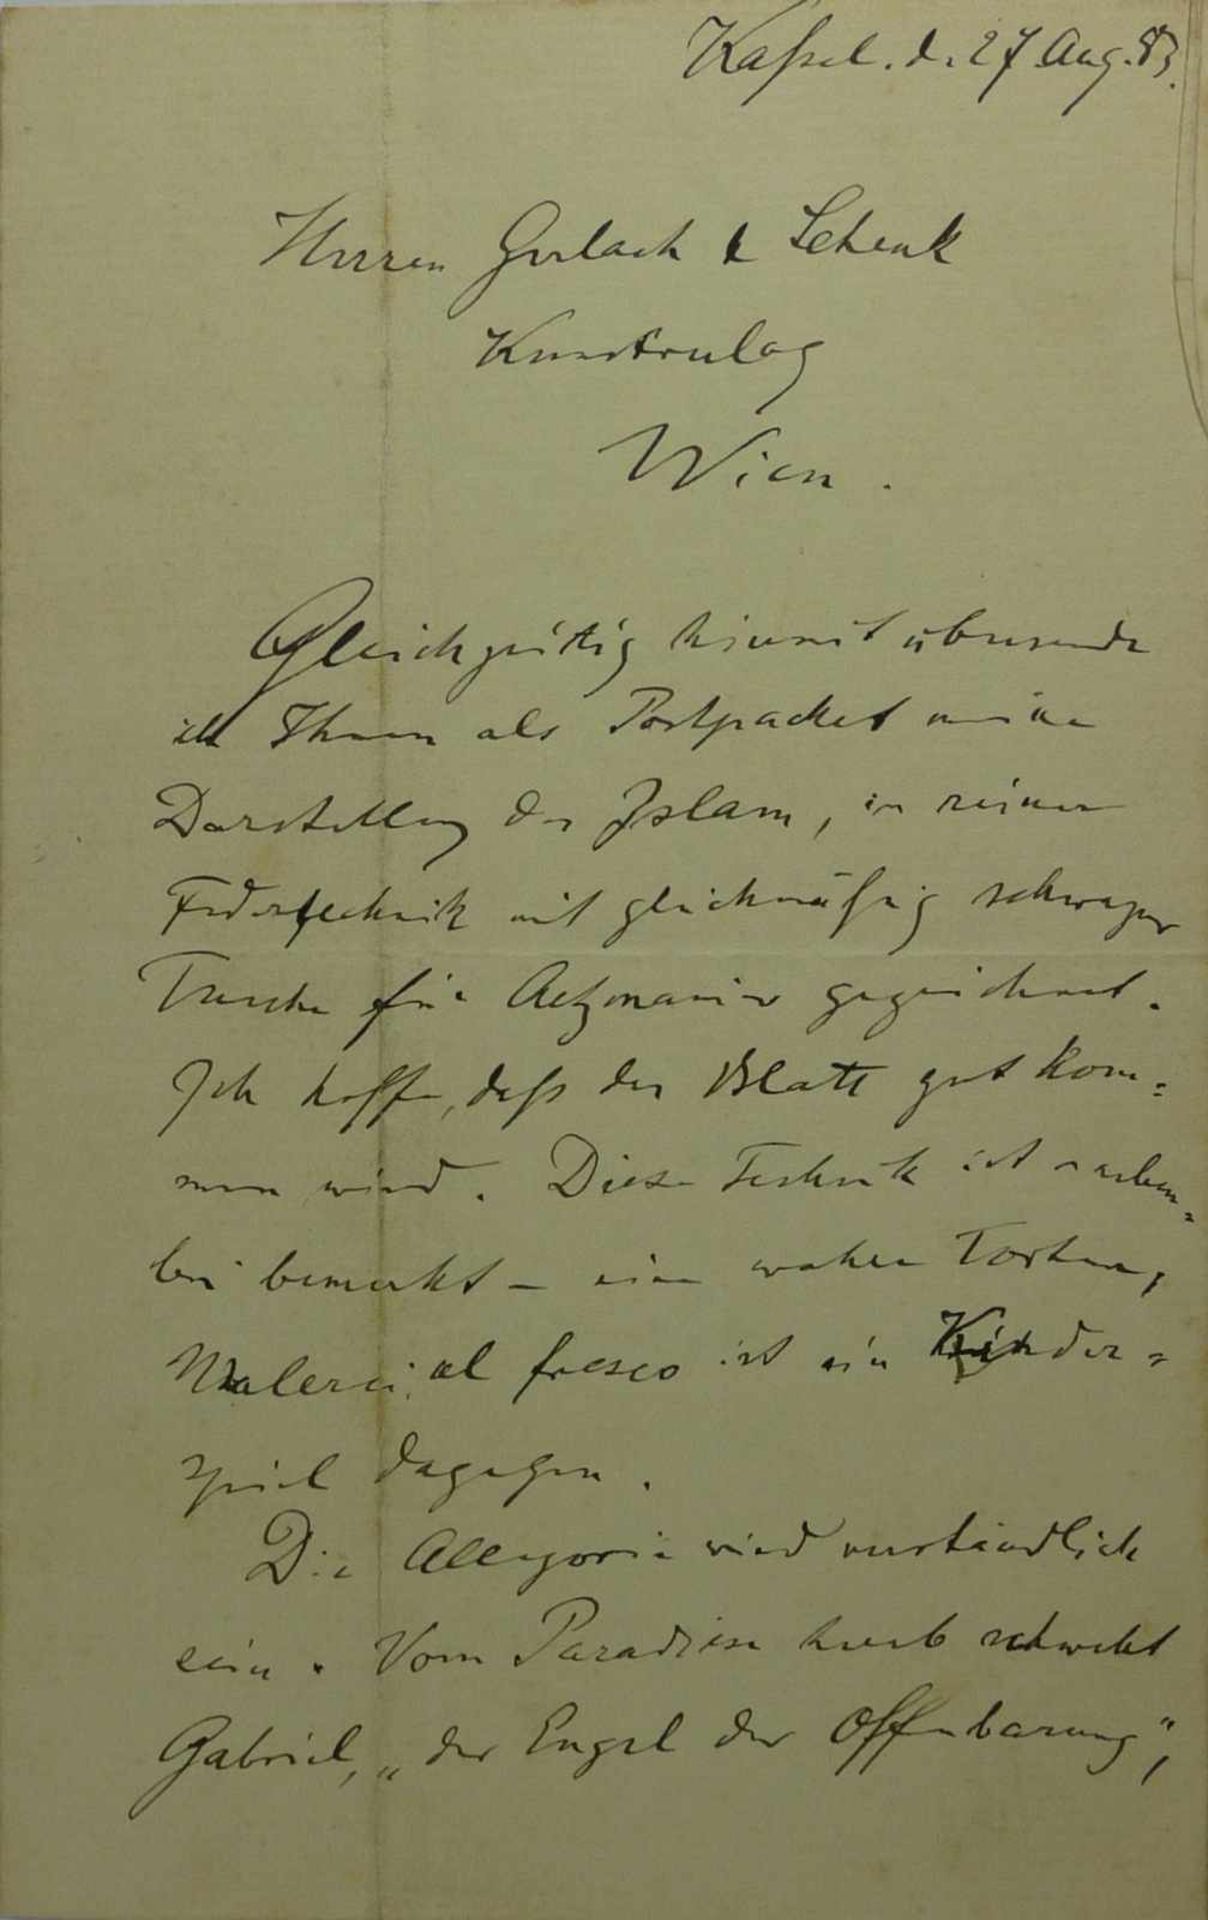 Kaßel. d. 27 Aug. 83.
Herren Gerlach & Schenk
Kunstverlag
Wien.
Gleichzeitig hiermit übersende
ich Ihnen als Postpacket meine
Darstellung des Islam, in reiner
Federtechnik mit gleichmäßig schwarzer
Tusche für Aetzmanier gezeichnet.
Ich hoffe, daß das Blatt gut kom=
men wird. Diese Technik ist neben=
bei bemerkt – eine wahre Tortur,
Malerei al fresco ist ein Kinder=
spiel dagegen.
Die Allegorie wird verständlich
sein. Vom Paradiese herab schwebt
Gabriel, „der Engel der Offenbarung“,